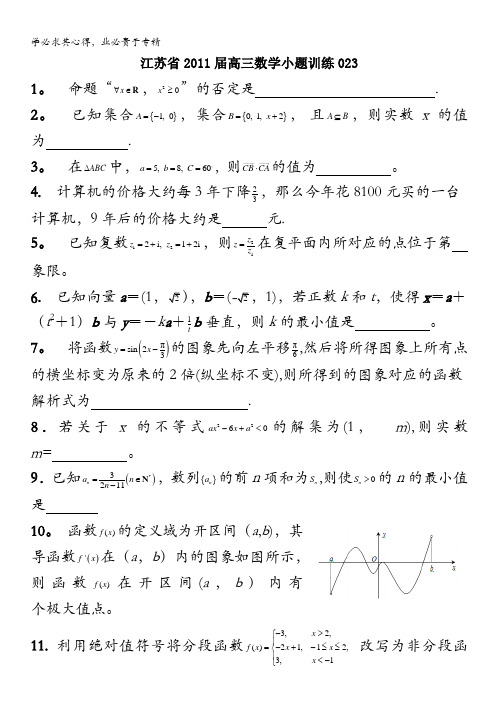 学必求其心得，业必贵于专精
江苏省2011届高三数学小题训练023
1。 命题“∀x∈R，x²≥0”的否定是 .
2。 已知集合A={-1, 0}，集合B={0, 1, x+2}， 且A⊆B，则实数x的值
为 .
3。 在△ABC中，a=5, b=8, C=60°，则CB·CA的值为 。
4. 计算机的价格大约每3年下降2/3，那么今年花8100元买的一台
计算机，9年后的价格大约是 元.
5。 已知复数z₁=2+i, z₂=1+2i，则z=z₂/z₁在复平面内所对应的点位于第
象限。
6. 已知向量a=(1，√2)，b=(-√2，1)，若正数k和t，使得x=a+
（t²+1）b与y=－ka+1/t b垂直，则k的最小值是 。
7。 将函数y=sin(2x-π/3)的图象先向左平移π/6,然后将所得图象上所有点
的横坐标变为原来的2倍(纵坐标不变),则所得到的图象对应的函数
解析式为 .
8．若关于x的不等式ax²-6x+a²<0的解集为(1， m),则实数
m= 。
9．已知aₙ=3/(2n-11)(n∈N*)，数列{aₙ}的前n项和为Sₙ,则使Sₙ>0的n的最小值
是
10。 函数f(x)的定义域为开区间（a,b)，其
导函数f'(x)在（a，b）内的图象如图所示，
则函数f(x)在开区间(a，b）内有
个极大值点。
y
a
O
b
x
11. 利用绝对值符号将分段函数f(x)={-3, x>2, -2x+1, -1≤x≤2, 3, x<-1 改写为非分段函